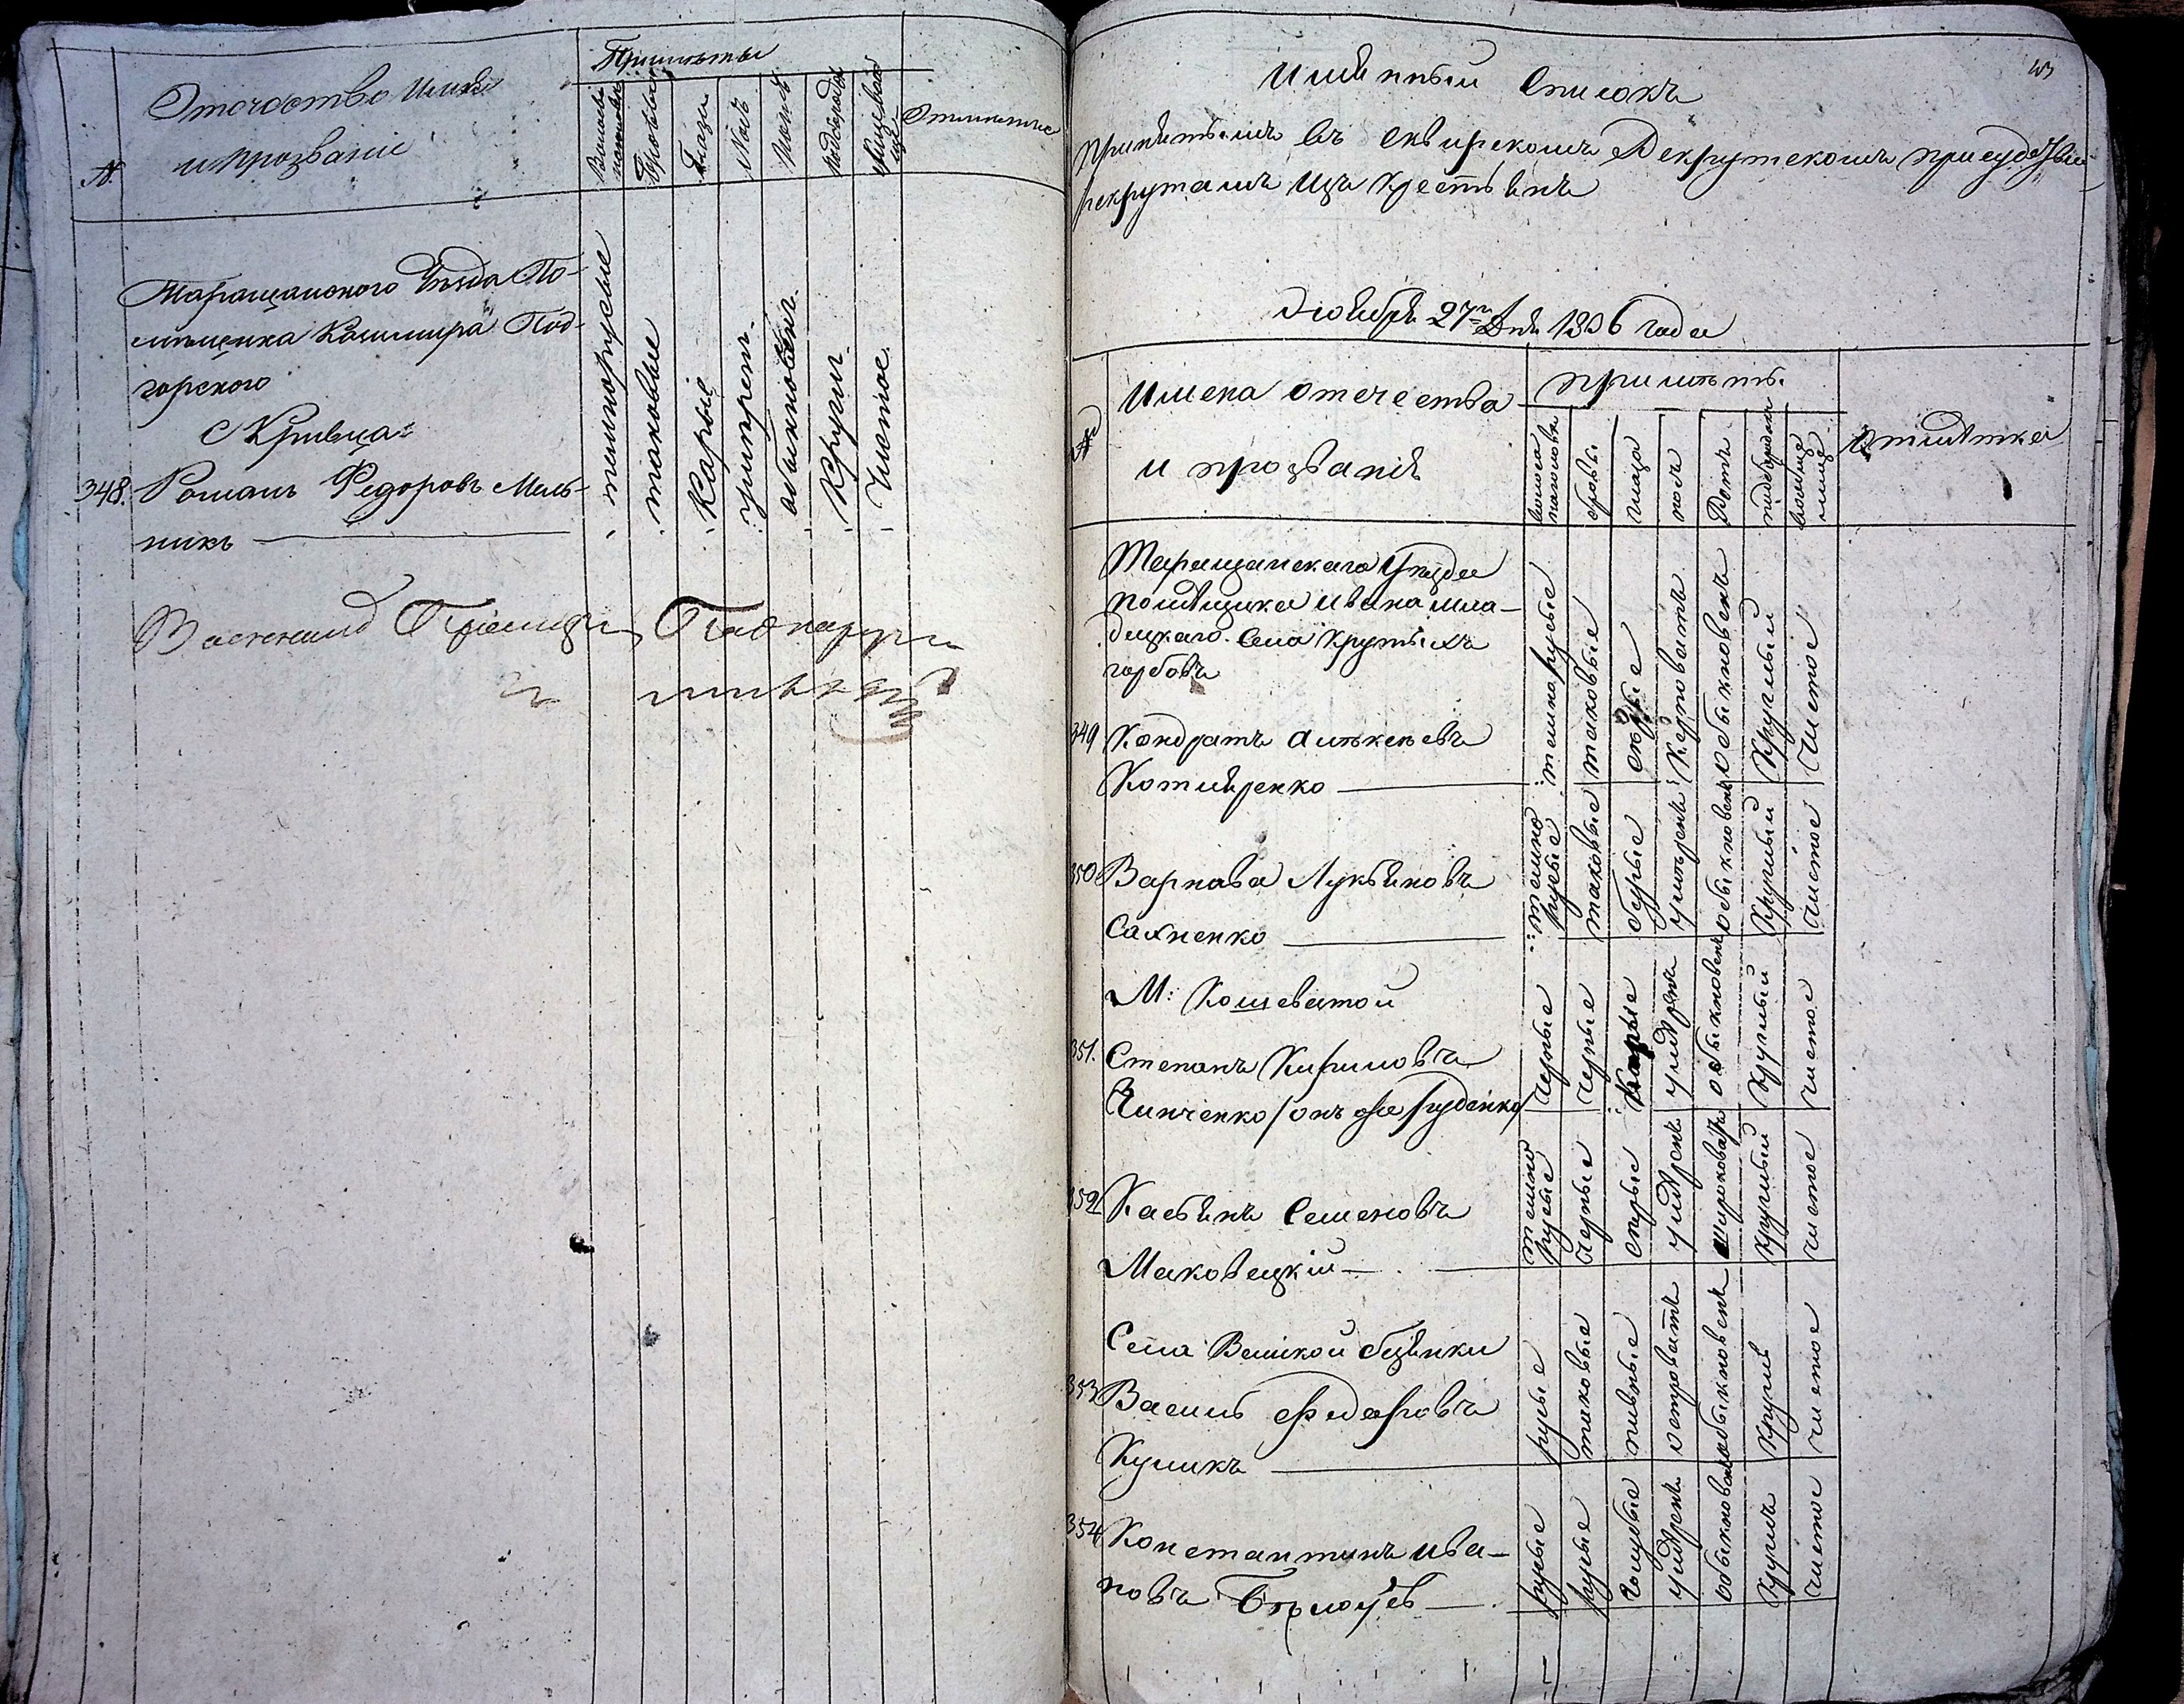 №
Отечество Имя
и прозваніе
Примѣты
Волосы
на головѣ
Брови
Глаза
Носъ
Подбородокъ
Лице
Отмѣтка
Таращанского Уѣзда По-
мѣщика Казимира Под-
горского
С Кривца
348. Романъ Федоровъ Мель-
никъ
темнорусые
таковые
Карые
умѣрен.
обыкновен.
Кругл.
Чистое
Имянный Списокъ
принятымъ въ Сквирскомъ Рекрутскомъ присудствіи
рекрутамъ изъ крестьянъ
Ноября 27го Дня 1836 года
№
Имена отечества
и прозванія
примѣты
волоса
на головѣ
брови
глаза
носъ
Ротъ
подбородокъ
лице
Отмѣтка
Таращанскаго Уѣзда
помѣщика Ивана Мла-
децкаго. Села Крутыхъ
горбовъ
349 Кондратъ Алѣксѣевъ
Котляренко
темнорусые
таковые
сѣрые
обыкновенъ
Круглый
Чистое
350 Варнава Лукьяновъ
Сахненко
темно
русые
таковые
серые
умѣренъ
обыкновенъ
Круглый
чистое
М: Кошеватой
351. Степанъ Кириловъ
Зинченко /онъ же Руденко/
черные
черные
Карые
умѣренъ
обыкновенъ
круглый
чистое
352 Касьянъ Семеновъ
Маковецкій
темно
русые
черные
серые
умѣренъ
широковатъ
круглый
чистое
Села Великой Березянки
353 Василь Федоровъ
Куликъ
русые
таковые
пивные
островатъ
обыкновенъ
круглъ
чистое
354 Константинъ Ива-
новъ Бѣлоусъ
русые
русые
Голубые
умѣренъ
обыкновенъ
Круглъ
чистое